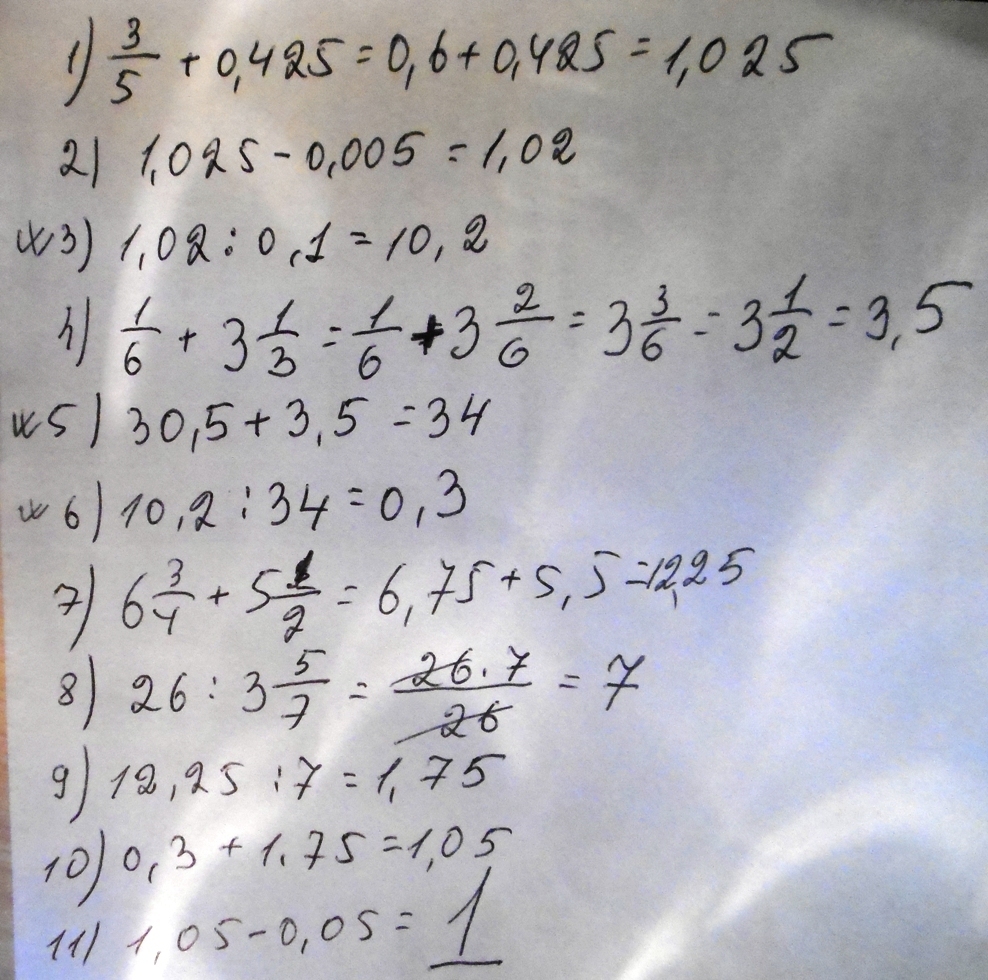 1) 3/5 + 0,425 = 0,6 + 0,425 = 1,025
2) 1,025 - 0,005 = 1,02
3) 1,02 : 0,1 = 10,2
4) 1/6 + 3 1/3 = 1/6 + 3 2/6 = 3 3/6 = 3 1/2 = 3,5
5) 30,5 + 3,5 = 34
6) 10,2 : 34 = 0,3
7) 6 3/4 + 5 1/2 = 6,75 + 5,5 = 12,25
8) 26 : 3 5/7 = 26 · 7/26 = 7
9) 12,25 : 7 = 1,75
10) 0,3 + 1.75 = 1,05
11) 1,05 - 0,05 = 1